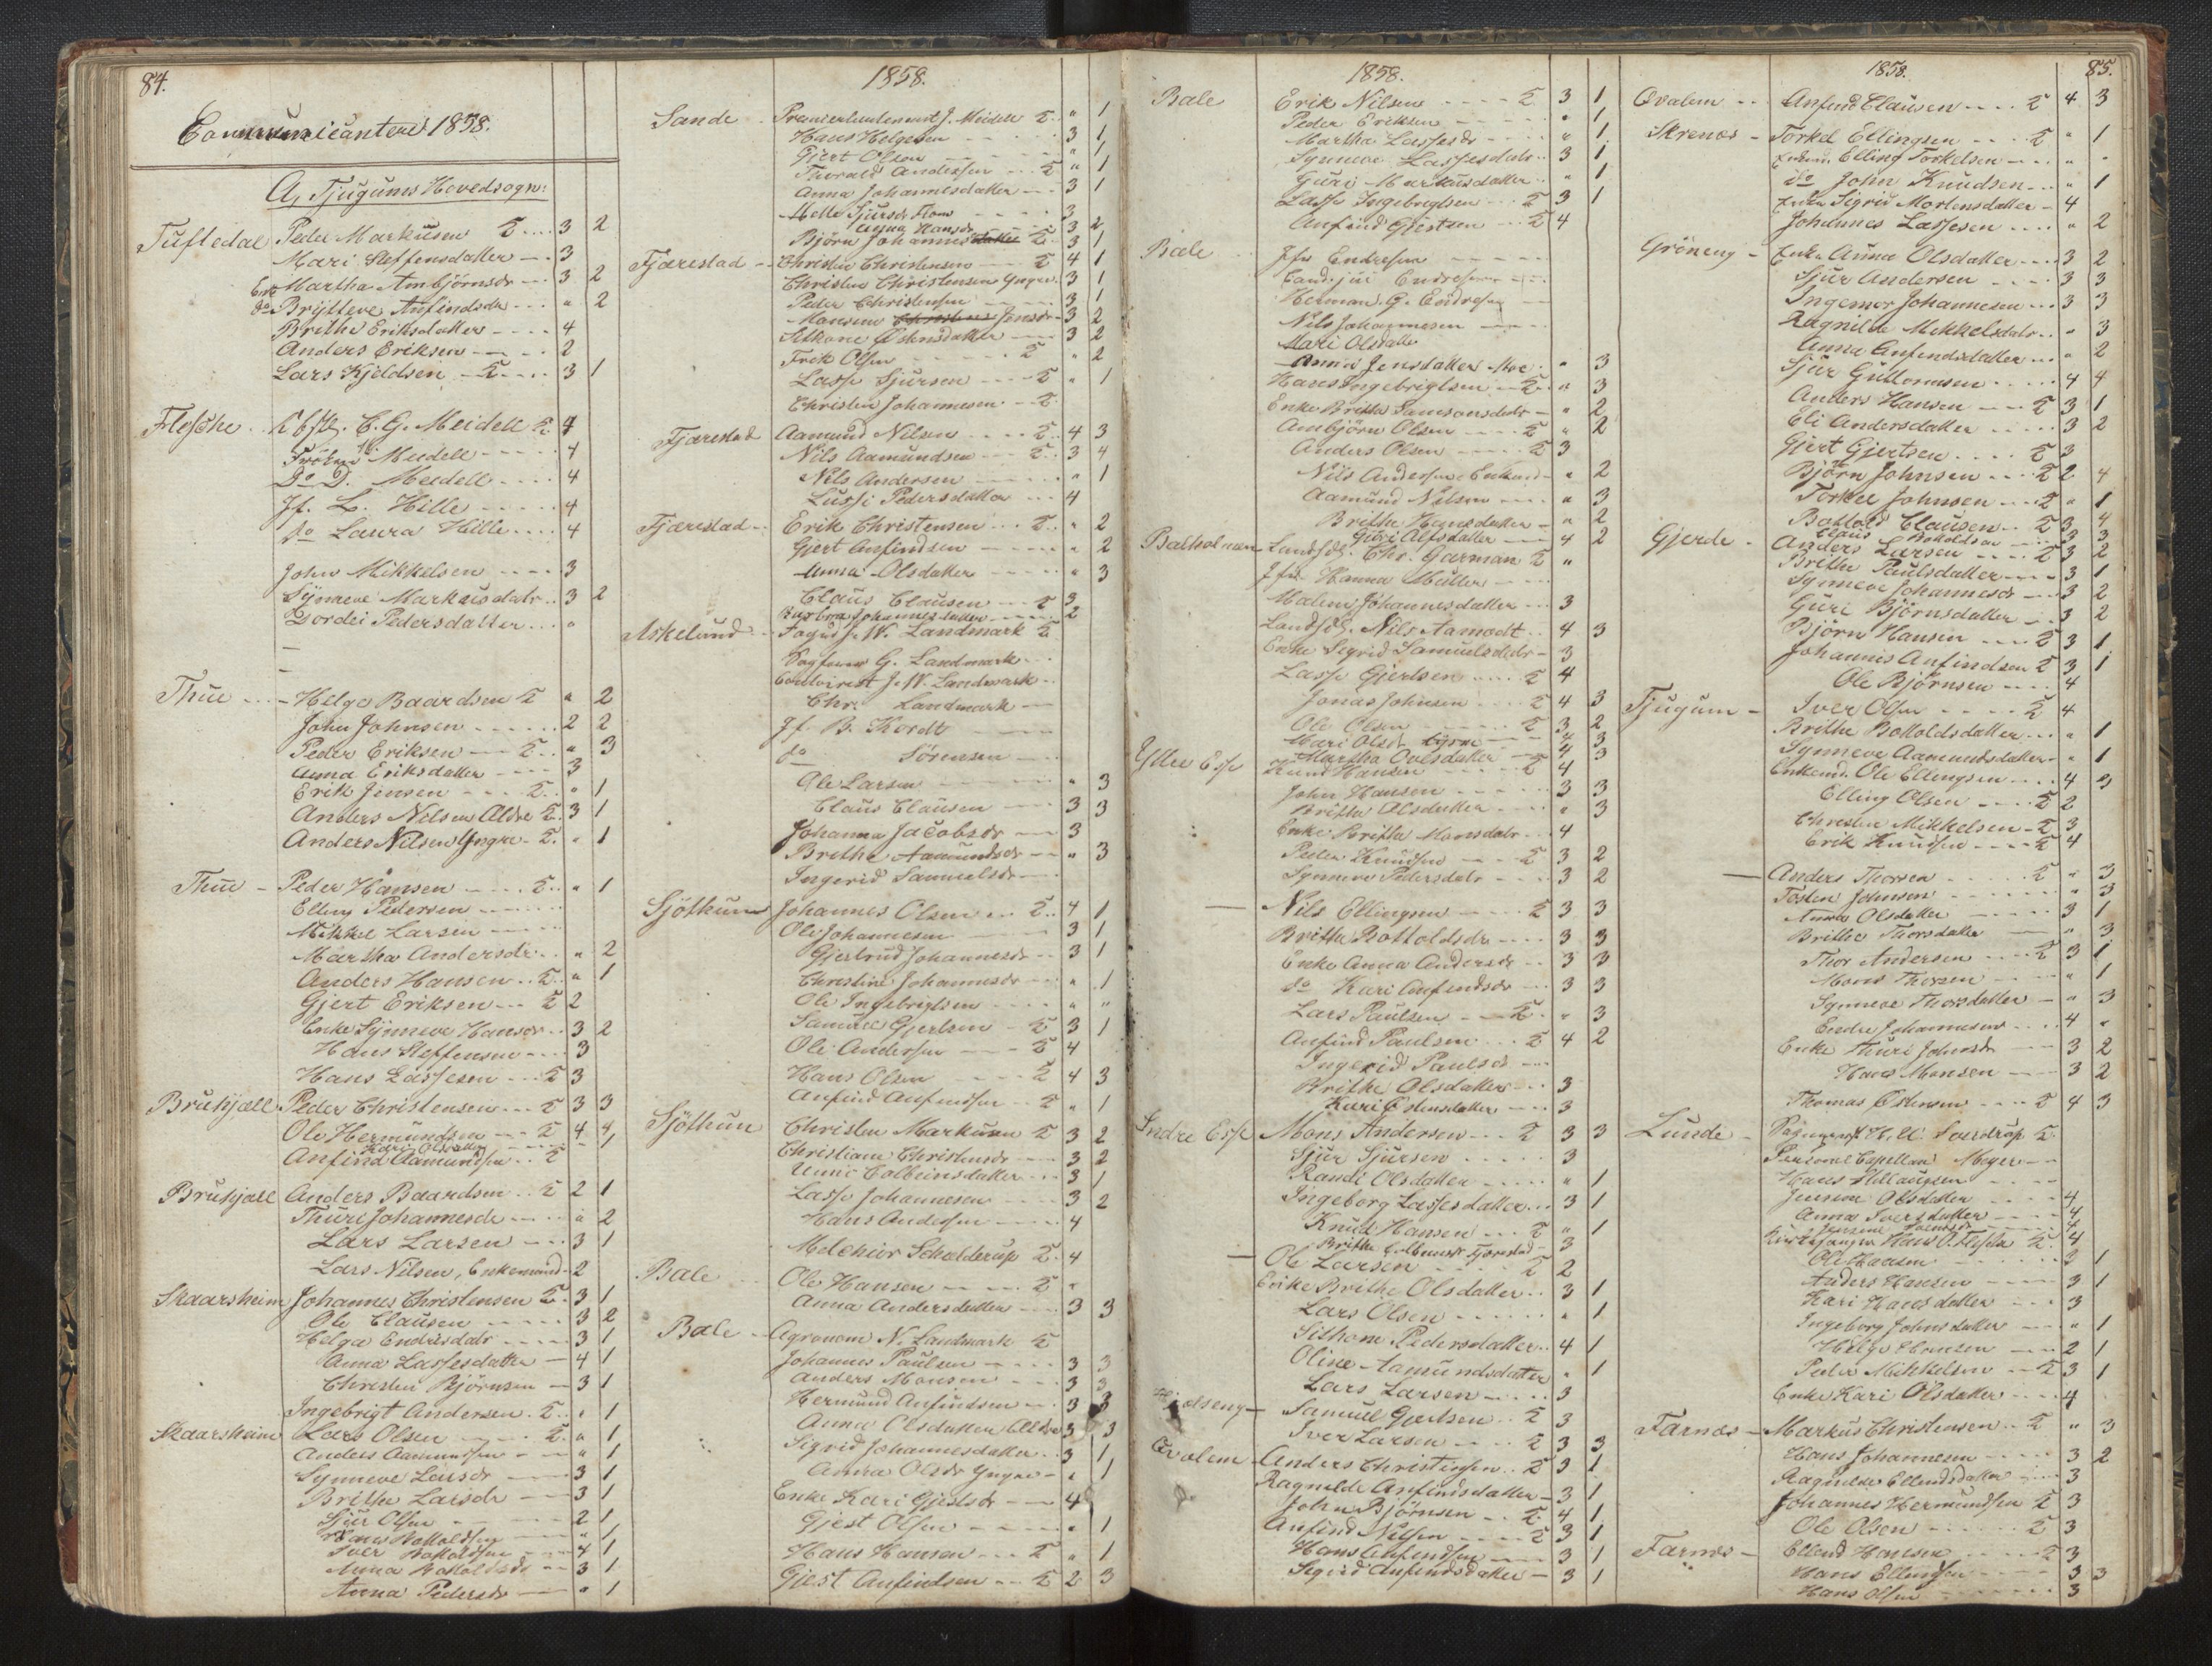 84.
Communicantere 1858.
A, Tjugums Hovedsogn:
Tuftedal Peder Markusen Σ 3 2
Mari Steffensdatter 3
Enk Martha Ambjörnsdr 3 2
do Brytteva Anfindsdr " 2
Brithe Eriksdatter 4
Anders Eriksen 2
Lars Kjeldsen Σ 3 1
Flesche C. G. Meidell Σ 4
Fröken Meidell 4
Do D. Meidell 4
Jf. L. Hille 4
do Laura Hille 4
John Mikkelsen 3
Synneve Markusdatr 3 2
Gordei Pedersdatter "
Thue Helge Baardsen Σ " 2
John Johnsen 2 2
Peder Eriksen Σ " 3
Anna Eriksdatter 3
Erik Jensen Σ " 1
Anders Nilsen Aldre Σ 3 1
Anders Nilsen Yngre Σ " 1
Thue Peder Hansen Σ " 1
Elling Pedersen
Mikkel Larsen
Martha Andersdr " 2
Anders Hansen Σ " 1
Gjert Eriksen Σ 2
Enke Synneve Hansdr 3 2
Hans Steffensen 3
Hans Lassesen Σ 3
Brukjæll Peder Christensen Σ 3 3
Ole Hermundsen Σ 4 4
Kari Olsdatter " 1
Anfind Aamundsen Σ
Brukjæll Anders Baardsen Σ 2 1
Thuri Johannesdr " 2
Lars Larsen 3 1
Lars Nilsen, Enkemand 2
Skaarsheim Johannes Christensen Σ 3 1
Ole Clausen 3 2
Helga Endrisdatr 3 1
Anna Lassesdatter 4 1
Christen Björnsen 3 1
Ingebrigt Andersen Σ " 1
Skaarsheim Lars Olsen Σ " 1
Anders Aamundsen " 1
Synneve Larsdr 3 1
Brithe Larsdr 3 1
Sjur Olsen 2 1
Hans Bottoldsen " 1
Iver Bottoldsen 4 1
Anna Bottoldsdr 3 1
Anna Pedersdr " 1
1858.
Sande Premierleutenant J. Meidell Σ " 1
Hans Helgesen 3 1
Gjert Olsen " 1
Thorald Andersen Σ " 1
Anna Johannesdatter 3 1
Mette Sjursdr Flom 3
Anna Hansdr 3 2
Björn Johannes Σ 3 1
Fjærestad Christen Christensen Σ 4 1
Christen Christensen Yngre 3 1
Peder Christensen 3 1
Jensdr 3 2
Sitkane Østensdatter 3 2
Erik Olsen Σ " 2
Lasse Sjursen Σ " 1
Christen Johannesen Σ
Fjærestad Aamund Nilsen Σ 4 3
Nils Aamundsen Σ 3 4
Nils Andersen " 1
Lussi Pedersdatter 4
Fjærestad Erik Christensen Σ " 2
Gjert Anfindsen " 2
Anna Olsdatter " 3
Claus Clausen Σ 3
Barbra Johannesdatter 2
Askelund Foged W. Landmark Σ
G. Landmark
J. W. Landmark
Chr. Landmark
Jf. B. Kordt
do Sörensen
Ole Larsen " 3
Claus Clausen 3 3
Johanna Jacobsdr 3
Brithe Aamundsdr " 3
Ingerid Samuelsdr
Sjöthun Johannes Olsen Σ 4 1
Ole Johannesen 3 1
Gjertrud Johannesdr 3 1
Christine Johannesdr " 1
Ole Ingebrigtsen " "
Samuel Gjertsen Σ 3 1
Ole Andersen Σ 4
Hans Olsen Σ 4 3
Anfind Anfindsen Σ " 1
Sjöthun Christen Markusen Σ 3 2
Christiane Christensdr 3 2
Unni Colbeinsdatter 3 1
Lasse Johannesen 3 2
Hans Andersen 4
Melchior Schelderup Σ 4
Bale Ole Hansen Σ "
Anna Andersdatter 3 3
Bale Agronom N. Landmark Σ
Johannes Paulsen 3 3
Anders Monsen 3 3
Hermund Anfindsen 3 3
Anna Olsdatter Aldre 3 3
Sigrid Johannesdatter 3 1
Anna Olsdr Yngre " 1
Enke Kari Gjestsdr 4
Gjest Olsen " 1
Hans Hansen Σ " 1
Gjest Anfindsen Σ 2 3
1858.
Bale Erik Nilsen Σ 3 1
Peder Eriksen " 1
Martha Lassesdr " 1
Synneve Lassesdatr 3 1
Guri Markusdatter " 1
Lasse Ingebrigtsen Σ 3 1
Anfind Gjestsen Σ 4
Bale Jfr Endresen
Cand. jur Endresen
Herman G. Endresen
Nils Johannesen
Mari Olsdatter
Anna Jensdatter Moe " 3
Hans Ingebrigtsen Σ " 3
Enke Brithe Samsonsdatr " 2
Ambjörn Olsen Σ " 2
Anders Olsen Σ 3
Nils Andersen Enkemd " 2
Aamund Nilsen " 3
Brithe Hansdatter " 2
Guri Alfsdatter 4 2
Balholmen Landhdl. Chr. Garman Σ "
Jfr Hanna Müller
Malene Johannesdatter 3
Landhdl. Nils Aamodt 4 3
Enke Sigrid Samuelsdatr 3
Lasse Gjertsen Σ 4
Jonas Johnsen Σ 4 3
Ole Olsen Σ 3 2
Mari Olsd. 4 3
Martha Ovesdatter 4 3
Ytre Esse Knud Hansen Σ 4
John Hansen 3 3
Brithe Olsdatter " 3
Enke Brithe Monsdatr 4
Peder Knudsen Σ 3 2
Synneve Pedersdatr 3 2
— Nils Ellingsen Σ 3 3
Brithe Bottoldsdr 3 3
Enke Anna Andersdr 3 3
do Kari Anfindsdr 3 3
Lars Paulsen Σ " 3
Anfind Paulsen Σ 4 2
Ingerid Paulsdr
Brithe Olsdatter 3
Kari Østensdatter 3
Indre Esse Mons Andersen Σ 3 3
Sjur Sjursen 3
Randi Olsdatter " 1
Ingeborg Lassesdatter 3 1
Knud Hansen Σ " 1
Brithe Colbeinsdr Fjærestad 3
— Ole Larsen Σ 2
Enke Brithe Olsdatter 3 1
Lars Olsen " 1
Sithane Pedersdatter 4 1
Oline Aamundsdatter " 1
Lars Larsen 3
Samuel Gjertsen Σ 3
Iver Larsen Σ 3 3
Qvalem Anders Christensen Σ 3 1
Ragnilde Anfindsdatter 3 1
John Björnsen Σ 4 1
Anfind Nilsen Σ 3 1
Hans Anfindsen 3 1
Sigrid Anfindsdatter 3 1
1858. 85.
Qvalem Anfind Clausen Σ 4 3
Skrenæs Torkel Ellingsen Σ " 1
Enkemd. Elling Torkelsen " "
do John Knudsen " 1
Enke Sigrid Mortensdatter 4
Johannes Lassesen " 2
Gröneng Enke Anna Olsdatter 3 2
Sjur Andersen 3 3
Ingemor Johannesen 3 3
Ragnilde Mikkelsdatr " 3
Anna Anfindsdatter " 2
Sjur Guttormsen 4 4
Anders Hansen Σ 3 1
Eli Andersdatter 3 2
Gjert Gjertsen Σ 3
Björn Johnsen Σ 2 4
Torkel Johnsen Σ " 1
Gjerde Bottold Clausen Σ 3 4
Claus Bottoldsen 3 3
Anders Larsen Σ 3 2
Brithe Paulsdatter 3 1
Synneve Johannesdr 3 2
Guri Björnsdatter 3 2
Björn Hansen Σ 3 1
Johannes Anfindsen Σ 3 1
Ole Björnsen 4
Tjugum Iver Olsen Σ 4
Brithe Bottoldsdatter " 1
Synneve Aamundsdatter " 1
Enkemd. Ole Ellingsen 4 3
Elling Olsen Σ 2
Christen Mikkelsen Σ 3
Erik Knudsen Σ 4
— Anders Thorsen Σ " 3
Tosten Johnsen " 3
Anna Olsdatter 3 1
Brithe Thorsdatter " 3
Thor Andersen Σ 3 1
Mons Thorsen " 1
Synneve Thorsdatter " 3
Endre Johannesen 4 "
Enke Thuri Johnsdr 3 2
Hans Monsen 3 2
Thomas Østensen Σ 4 3
Lunde Sogneprest H. U. Sverdrup Σ
Personel Capellan Meyer
Hans
Olsdatter 4
Anna Iversdatter 4
4
Kirkesanger Hans O. Flesche Σ 4
Ole Hansen 3 1
Anders Hansen 3 1
Kari Hansdatter 3
Ingeborg Johnsdatter " 1
Helge Hansen 2 1
Peder Mikkelsen Σ 3 1
Enke Kari Olsdatter 4
Farnæs Markus Christensen Σ " 3
Hans Johannesen 3 2
Ragnilde Ellendsdatter 3
Johannes Hermundsen Σ 3
Ole Olsen Σ 3
Farnæs Ellend Hansen Σ 3
Hans Ellendsen 3 3
Hans Olsen 3